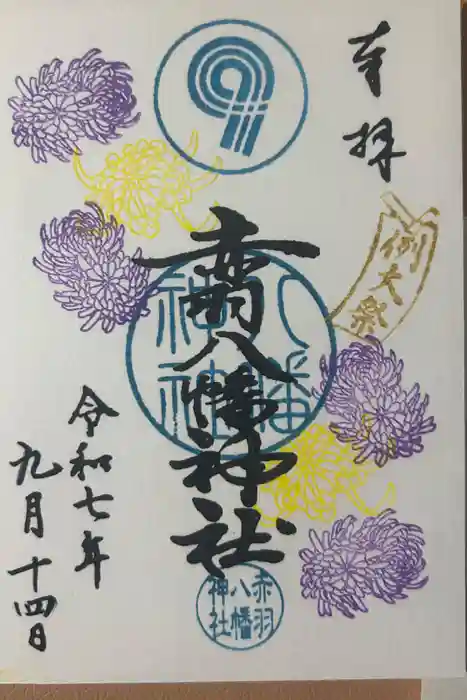 奉拝
例大祭
赤羽八幡神社
八幡
神社
赤羽
八幡
神社
令和七年
九月十四日